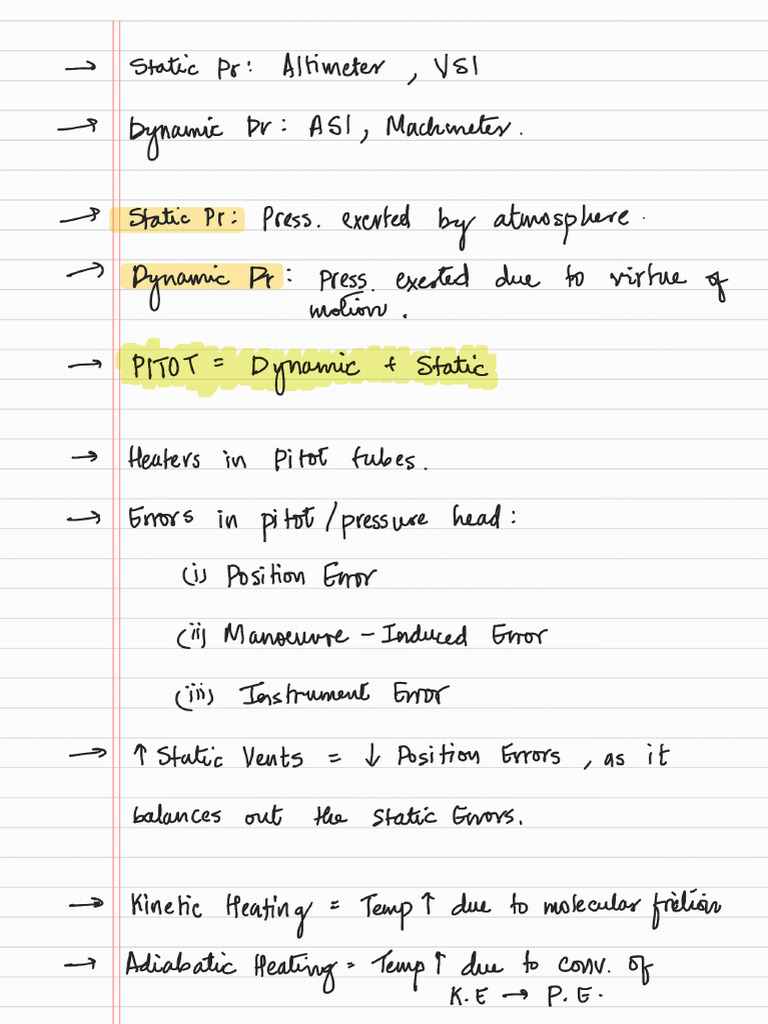 → Static Pr: Altimeter, VSI
→ Dynamic Pr: ASI, Machmeter.
→ Static Pr: Press. exerted by atmosphere.
→ Dynamic Pr: Press. exerted due to virtue of
motion.
→ PITOT = Dynamic + Static
→ Heaters in Pitot tubes.
→ Errors in pitot/pressure head:
(i) Position Error
(ii) Manoeuvre-Induced Error
(iii) Instrument Error
→ ↑ Static Vents = ↓ Position Errors, as it
balances out the static Errors.
→ Kinetic Heating = Temp ↑ due to molecular friction
→ Adiabatic Heating = Temp ↑ due to conv. of
K.E → P.E.